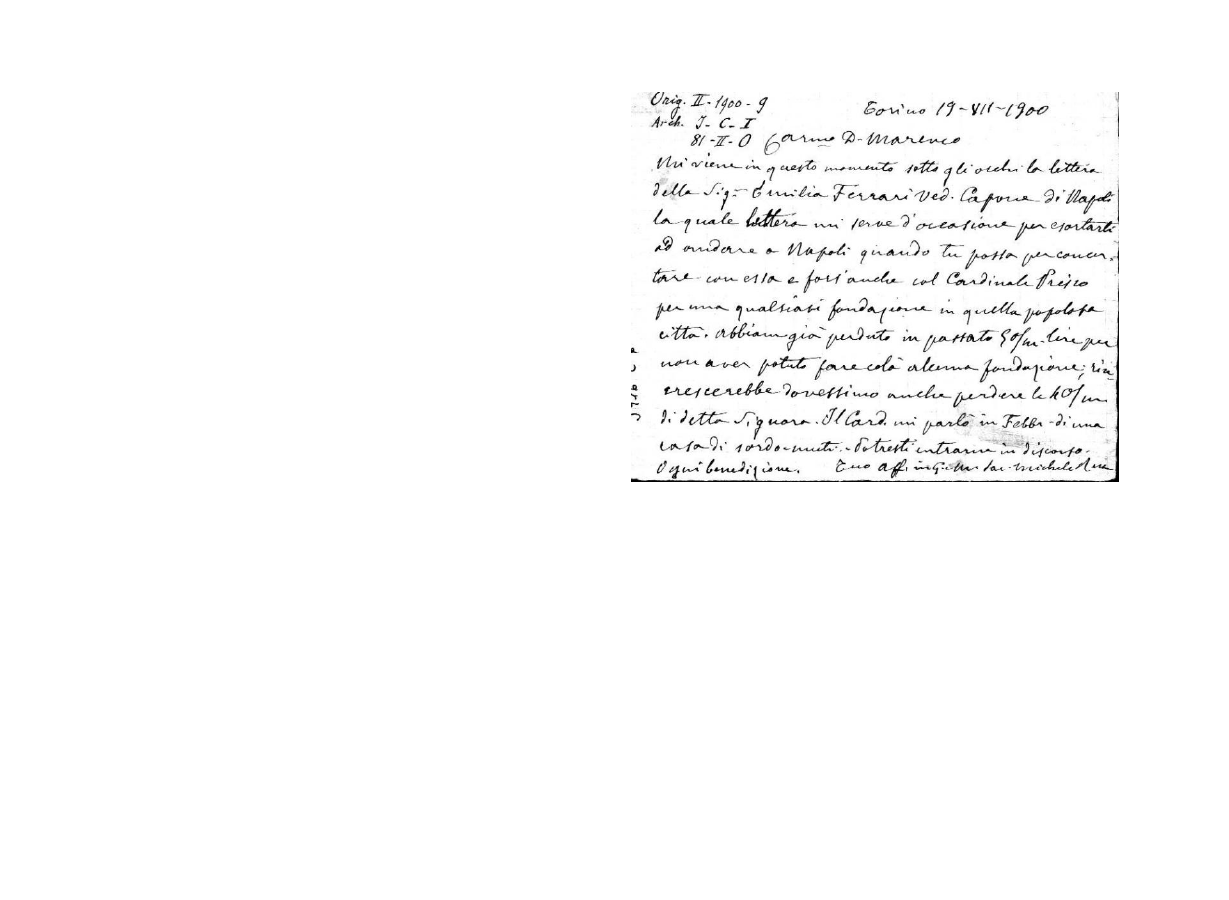 Orig. II-1900-9
Torino 19-VII-1900
Arch. I-C-I
81-II-O Carmo D. Marenco
Mi viene in questo momento sotto gli occhi la lettera
della Sig.ª Emilia Ferrari Ved. Capone di Napoli
la quale lettera mi serve d'occasione per esortarti
ad andare a Napoli quando tu possa per concer-
tare con essa e fors'anche col Cardinale Prisco
per una qualsiasi fondazione in quella popolosa
città. Abbiam già perduto in passato 50/m lire per
non aver potuto fare colà alcuna fondazione; rin-
crescerebbe dovessimo anche perdere le 40/m
di detta Signora. Il Card. mi parlò in Febbr. di una
casa di sordo-muti. Potresti entrarne in discorso.
Ogni benedizione. Tuo aff. in G. e M. Sac. Michele Rua